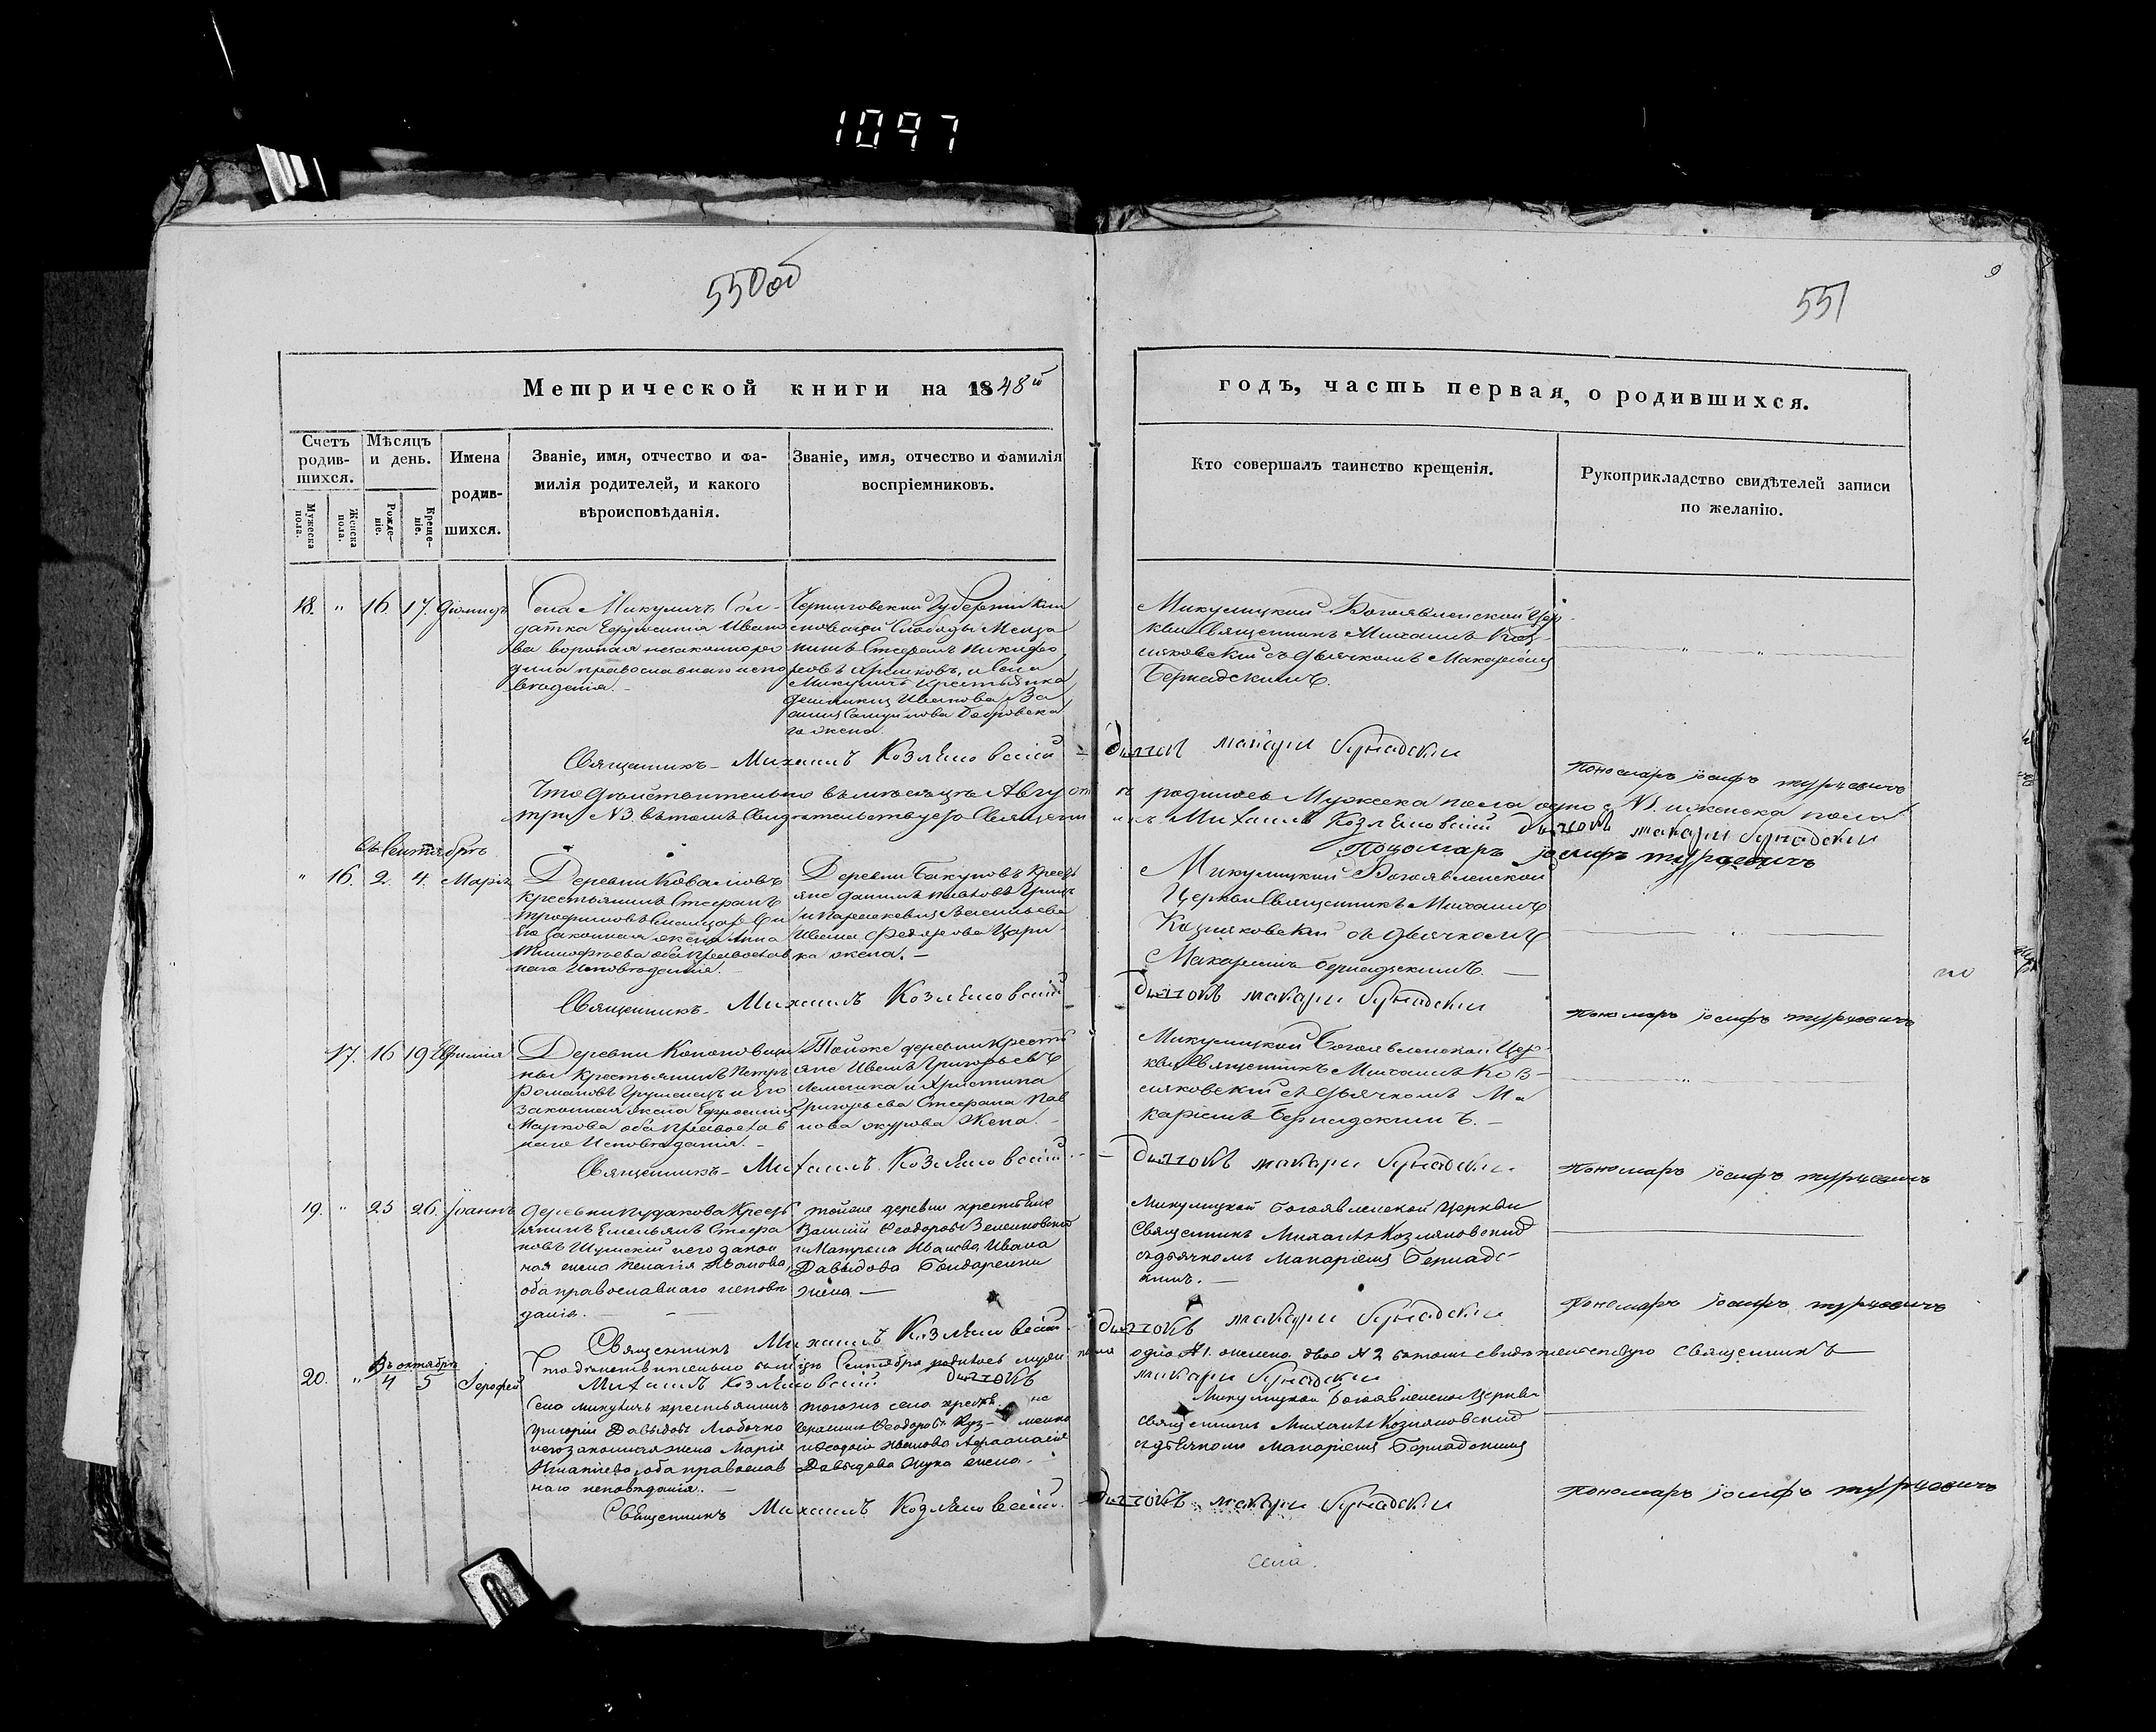 1097
550об
551
9
Метрической книги на 1848й
годъ, часть первая, о родившихся.
Счетъ родив-
шихся.
Мужеска пола.
Женска пола.
Мѣсяцъ
и день.
Рожде-
ніе.
Креще-
ніе.
Имена
родив-
шихся.
Званіе, имя, отчество и фа-
милія родителей, и какого
вѣроисповѣданія.
Званіе, имя, отчество и фамилія
воспріемниковъ.
Кто совершалъ таинство крещенія.
Рукоприкладство свидѣтелей записи
по желанію.
18. " 16. 17. Діомидъ
Села Микуличъ Сол-
датка Ефросинія Ивано
ва незаконноро
дила православнаго испо
вѣданія.
Черниговской Губерніи
Слободы Меща
нинъ Стефанъ Никифо
ровъ и Села
Микуличъ крестьянка
Иванова
жена
Микулицкой Богоявленской Цер-
кви Священникъ Михаилъ Коз-
ляковскій съ дьячкомъ Макаріемъ
Бернадскимъ.
Священникъ Михаилъ Козляковскій
Дьячокъ Макари Бернадски
Пономаръ Іосифъ Турцевичъ
Что дѣйствительно въ мѣсяцѣ Августѣ родилось Мужеска пола одно №1. и женска пола
три №3. въ томъ Свидѣтельствуетъ Священникъ Михаилъ Козляковскій Дьячокъ Макари Бернадски
Пономаръ Іосифъ Турцевичъ
въ Сентябрѣ
" 16. 2. 4. Марія
Деревни Коваліовъ
Крестьянинъ Стефанъ
Трофимовъ и
Его законная жена Анна
Тимофѣева оба Православ
наго Исповѣданія.
Деревни Бакуновъ Кресть
яне Даніилъ
и Параскевия Васильева
Ивана Федорова Цари-
ка жена.
Микулицкой Богоявленской
Церкви Священникъ Михаилъ
Козляковскій съ дьячкомъ
Макаріемъ Бернадскимъ.
Священникъ Михаилъ Козляковскій
Дьячокъ Макари Бернадски
Пономаръ Іосифъ Турцевичъ
17. 16 19 Евфимія
Деревни
ны Крестьянинъ Петръ
Романовъ и Его
законная жена Ефросинія
Маркова оба Православ
наго Исповѣданія.
Тойже деревни кресть
яне Иванъ Григорьевъ
и Христина
Григорьева Стефана Пав
лова жена.
Микулицкой Богоявленской Цер-
кви Священникъ Михаилъ Коз-
ляковскій съ Дьячкомъ Ма
каріемъ Бернадскимъ.
Священникъ Михаилъ Козляковскій
Дьячокъ Макари Бернадски
Пономаръ Іосифъ Турцевичъ
19. " 25 26. Іоаннъ
Деревни Пудакова Кресть
янинъ Емельянъ Стефа
новъ Шумскій и его закон
ная жена Пелагія Иванова,
оба православнаго исповѣ
данія.
тойже деревни крестьяне
Василій Ѳеодоровъ
и Матрона Иванова Ивана
Давыдова Бондаренки
жена
Микулицкой Богоявленской Церкви
Священникъ Михаилъ Козляковскій
съ дьячкомъ Макаріемъ Бернадс-
кимъ.
Священникъ Михаилъ Козляковскій
Дьячокъ Макари Бернадски
Пономаръ Іосифъ Турцевичъ
Что дѣйствительно въ мѣсяцѣ Сентябрѣ родилось мужск. пола одно №1. женска двое №2 въ томъ свидѣтельствую Священникъ
Михаилъ Козляковскій Дьячокъ Макари Бернадски
Въ октябрѣ
20. " 4 5 Іерофей
Села Микуличъ крестьянинъ
Григорій Давыдовъ
и его законная жена Марія
Игнатіева, оба православ
наго исповѣданія.
тогожъ села крестьяне
Ѳеодоровъ
и Ѳеодосія Иванова Афанасія
Давыдова Жука жена.
Микулицкой Богоявленской Церкви
священникъ Михаилъ Козляковскій
съ дьячкомъ Макаріемъ Бернадскимъ
Священникъ Михаилъ Козляковскій
Дьячокъ Макари Бернадски
Пономаръ Іосифъ Турцевичъ
села.